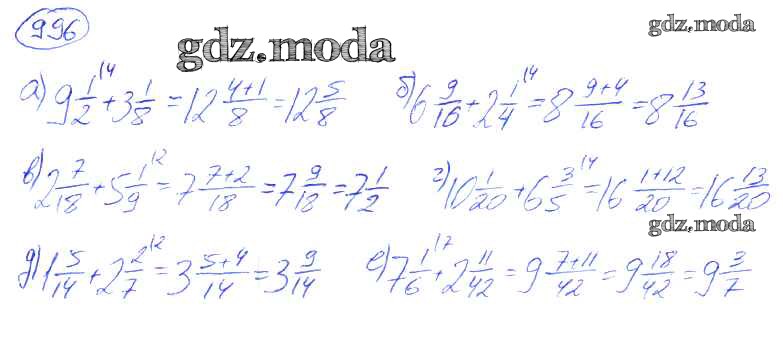 996
gdz.moda
gdz.moda
а) 9 1/2 \14 + 3 1/8 = 12 4+1/8 = 12 5/8
б) 6 9/16 + 2 1/4 \14 = 8 9+4/16 = 8 13/16
в) 2 7/18 + 5 1/9 \12 = 7 7+2/18 = 7 9/18 = 7 1/2
г) 10 1/20 + 6 3/5 \14 = 16 1+12/20 = 16 13/20
gdz.moda
д) 1 5/14 + 2 2/7 \12 = 3 5+4/14 = 3 9/14
е) 7 1/6 \17 + 2 11/42 = 9 7+11/42 = 9 18/42 = 9 3/7